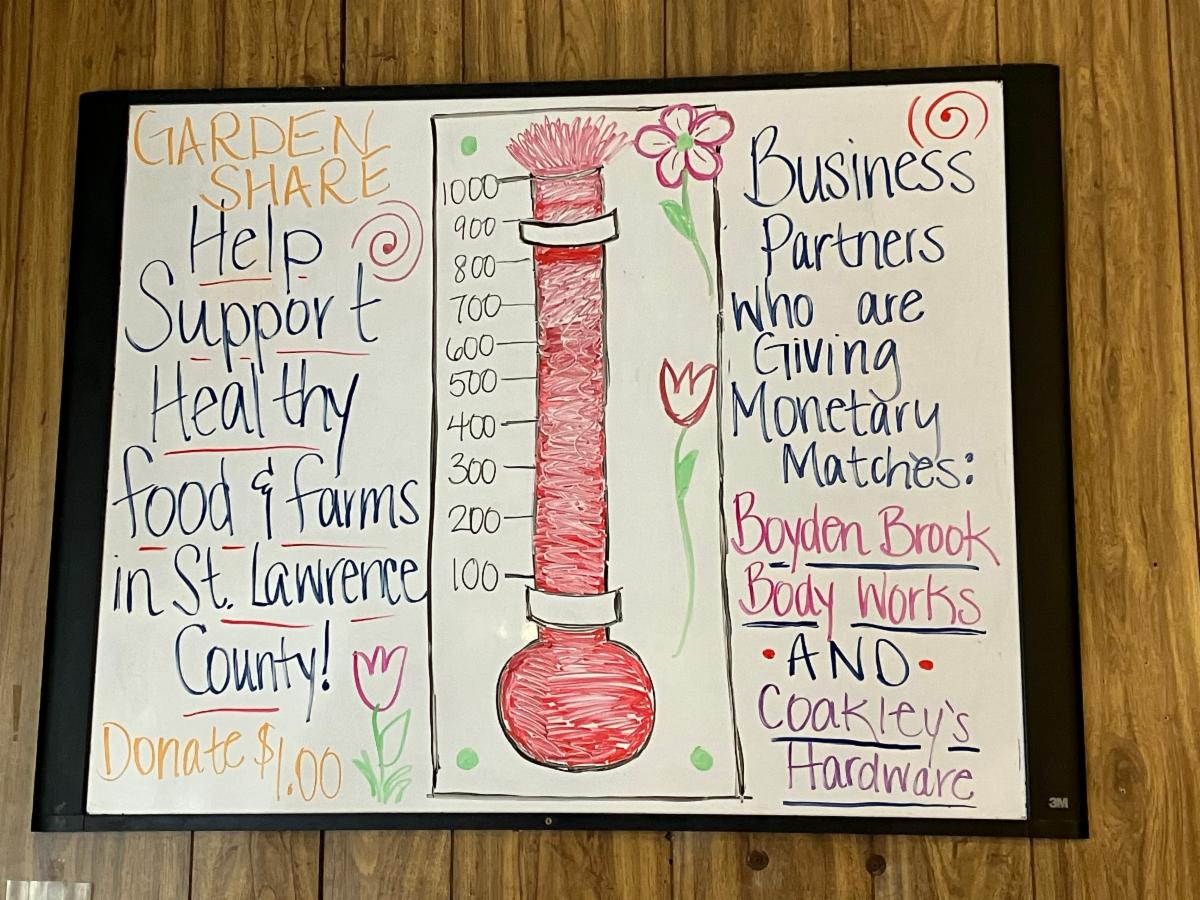 GARDEN
SHARE
Help
Support
Healthy
food & farms
in St. Lawrence
County!
Donate $1.00
1000
900
800
700
600
500
400
300
200
100
Business
Partners
who are
Giving
Monetary
Matches:
Boyden Brook
Body Works
AND
Coakley's
Hardware
3M